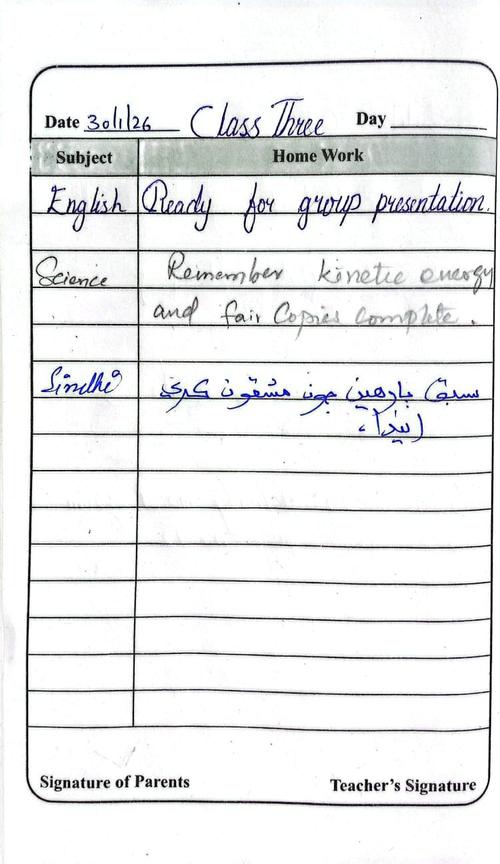 Date 30/1/26 Class Three Day
Subject Home Work
English Ready for group presentation.
Science Remember kinetic energy
and fair Copies complete.
Sindhi سبق بارهين جون مشقون ڪري
Signature of Parents Teacher's Signature